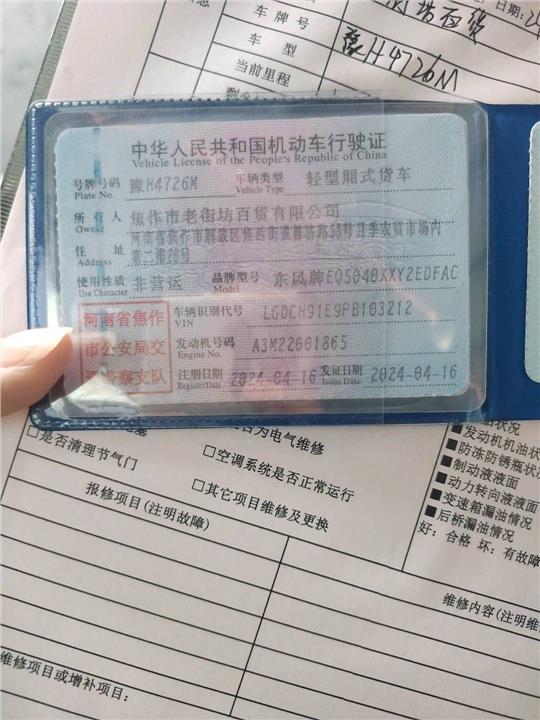 日期:2
车牌号
坊百货
车型
豫H4726M
当前里程
中华人民共和国机动车行驶证
Vehicle License of the People's Republic of China
号牌号码 豫H4726M 车辆类型 轻型厢式货车
Plate No. Vehicle Type
所有人 焦作市老街坊百货有限公司
Owner
住址 河南省焦作市解放区焦西街道
Address 第二排20号
使用性质 非营运 品牌型号 东风牌EQ5040XXY2EDFAC
Use Character Model
河南省焦作
市公安局交
通警察支队
车辆识别代号 LGDCH91E9PB103212
VIN
发动机号码 A3M22001865
Engine No.
注册日期 2024-04-16 发证日期 2024-04-16
Register Date Issue Date
为电气维修
□是否清理节气门
□空调系统是否正常运行
□其它项目维修及更换
状况
■发动机机油状
■防冻防锈瓶状
■制动液液面
■动力转向液液面
■变速箱漏油情况
■后桥漏油情况
好:合格 坏:有故障
报修项目(注明故障)
维修内容(注明维
维修项目或增补项目: